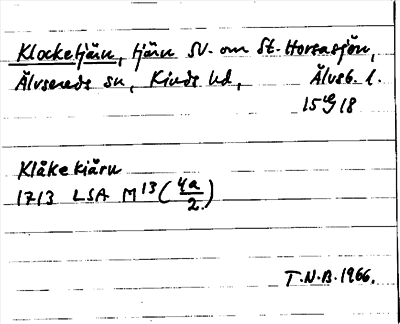 Klocketjärn, tjärn SV. om St. Horsasjön,
Älvsereds sn, Kinds hd, Älvsb. l.
15 g 18
Klåkekiärn
1713 LSA M 13 (4a/2)
T.N.B. 1966.